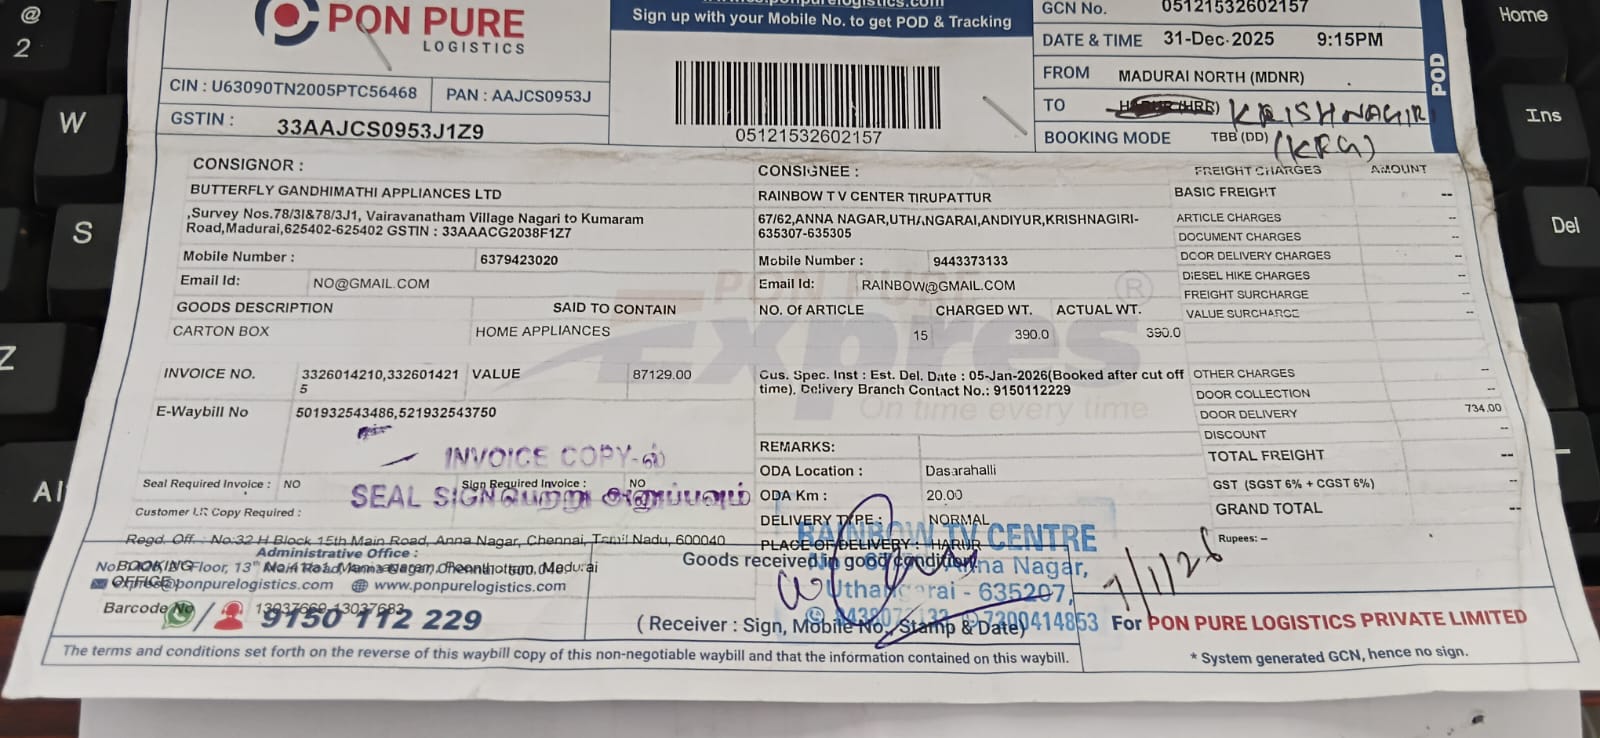 PON PURE
LOGISTICS
Sign up with your Mobile No. to get POD & Tracking
GCN No. 05121532602157
DATE & TIME 31-Dec-2025 9:15PM
FROM MADURAI NORTH (MDNR)
TO KRISHNAGIRI
(KRG)
BOOKING MODE TBB (DD)
POD
CIN : U63090TN2005PTC56468 PAN : AAJCS0953J
GSTIN : 33AAJCS0953J1Z9
05121532602157
CONSIGNOR :
BUTTERFLY GANDHIMATHI APPLIANCES LTD
,Survey Nos.78/3I&78/3J1, Vairavanatham Village Nagari to Kumaram
Road,Madurai,625402-625402 GSTIN : 33AAACG2038F1Z7
Mobile Number : 6379423020
Email Id: NO@GMAIL.COM
CONSIGNEE :
RAINBOW T V CENTER TIRUPATTUR
67/62,ANNA NAGAR,UTHANGARAI,ANDIYUR,KRISHNAGIRI-
635307-635305
Mobile Number : 9443373133
Email Id: RAINBOW@GMAIL.COM
GOODS DESCRIPTION SAID TO CONTAIN NO. Of ARTICLE CHARGED WT. ACTUAL WT.
CARTON BOX HOME APPLIANCES 15 390.0 390.0
INVOICE NO. 3326014210,332601421
5
VALUE 87129.00
E-Waybill No 501932543486,521932543750
Cus. Spec. Inst : Est. Del. Date : 05-Jan-2026(Booked after cut off
time), Delivery Branch Contact No.: 9150112229
Expres
On time every time
FREIGHT CHARGES AMOUNT
BASIC FREIGHT --
ARTICLE CHARGES --
DOCUMENT CHARGES --
DOOR DELIVERY CHARGES --
DIESEL HIKE CHARGES --
FREIGHT SURCHARGE --
VALUE SURCHARGE --
OTHER CHARGES --
DOOR COLLECTION --
DOOR DELIVERY 734.00
DISCOUNT --
TOTAL FREIGHT --
GST (SGST 6% + CGST 6%) --
GRAND TOTAL --
Rupees: –
INVOICE COPY-ல்
SEAL SIGN பெற்று அனுப்பவும்
Seal Required Invoice : NO Sign Required Invoice : NO
Customer LR Copy Required :
REMARKS:
ODA Location : Dasarahalli
ODA Km : 20.00
DELIVERY TYPE : NORMAL
PLACE OF DELIVERY : HARUR
RAINBOW TV CENTRE
Anna Nagar,
Uthangarai - 635207,
7/1/26
Regd. Off. : No:32 H Block 15th Main Road, Anna Nagar, Chennai, Tamil Nadu, 600040
Administrative Office :
BOOKING
OFFICE
www.ponpurelogistics.com
Barcode No 13037669-13037683
9150 112 229
Goods received in good condition.
( Receiver : Sign, Mobile No., Stamp & Date)
For PON PURE LOGISTICS PRIVATE LIMITED
The terms and conditions set forth on the reverse of this waybill copy of this non-negotiable waybill and that the information contained on this waybill.
* System generated GCN, hence no sign.
@
2
W
S
Z
Home
Ins
Del